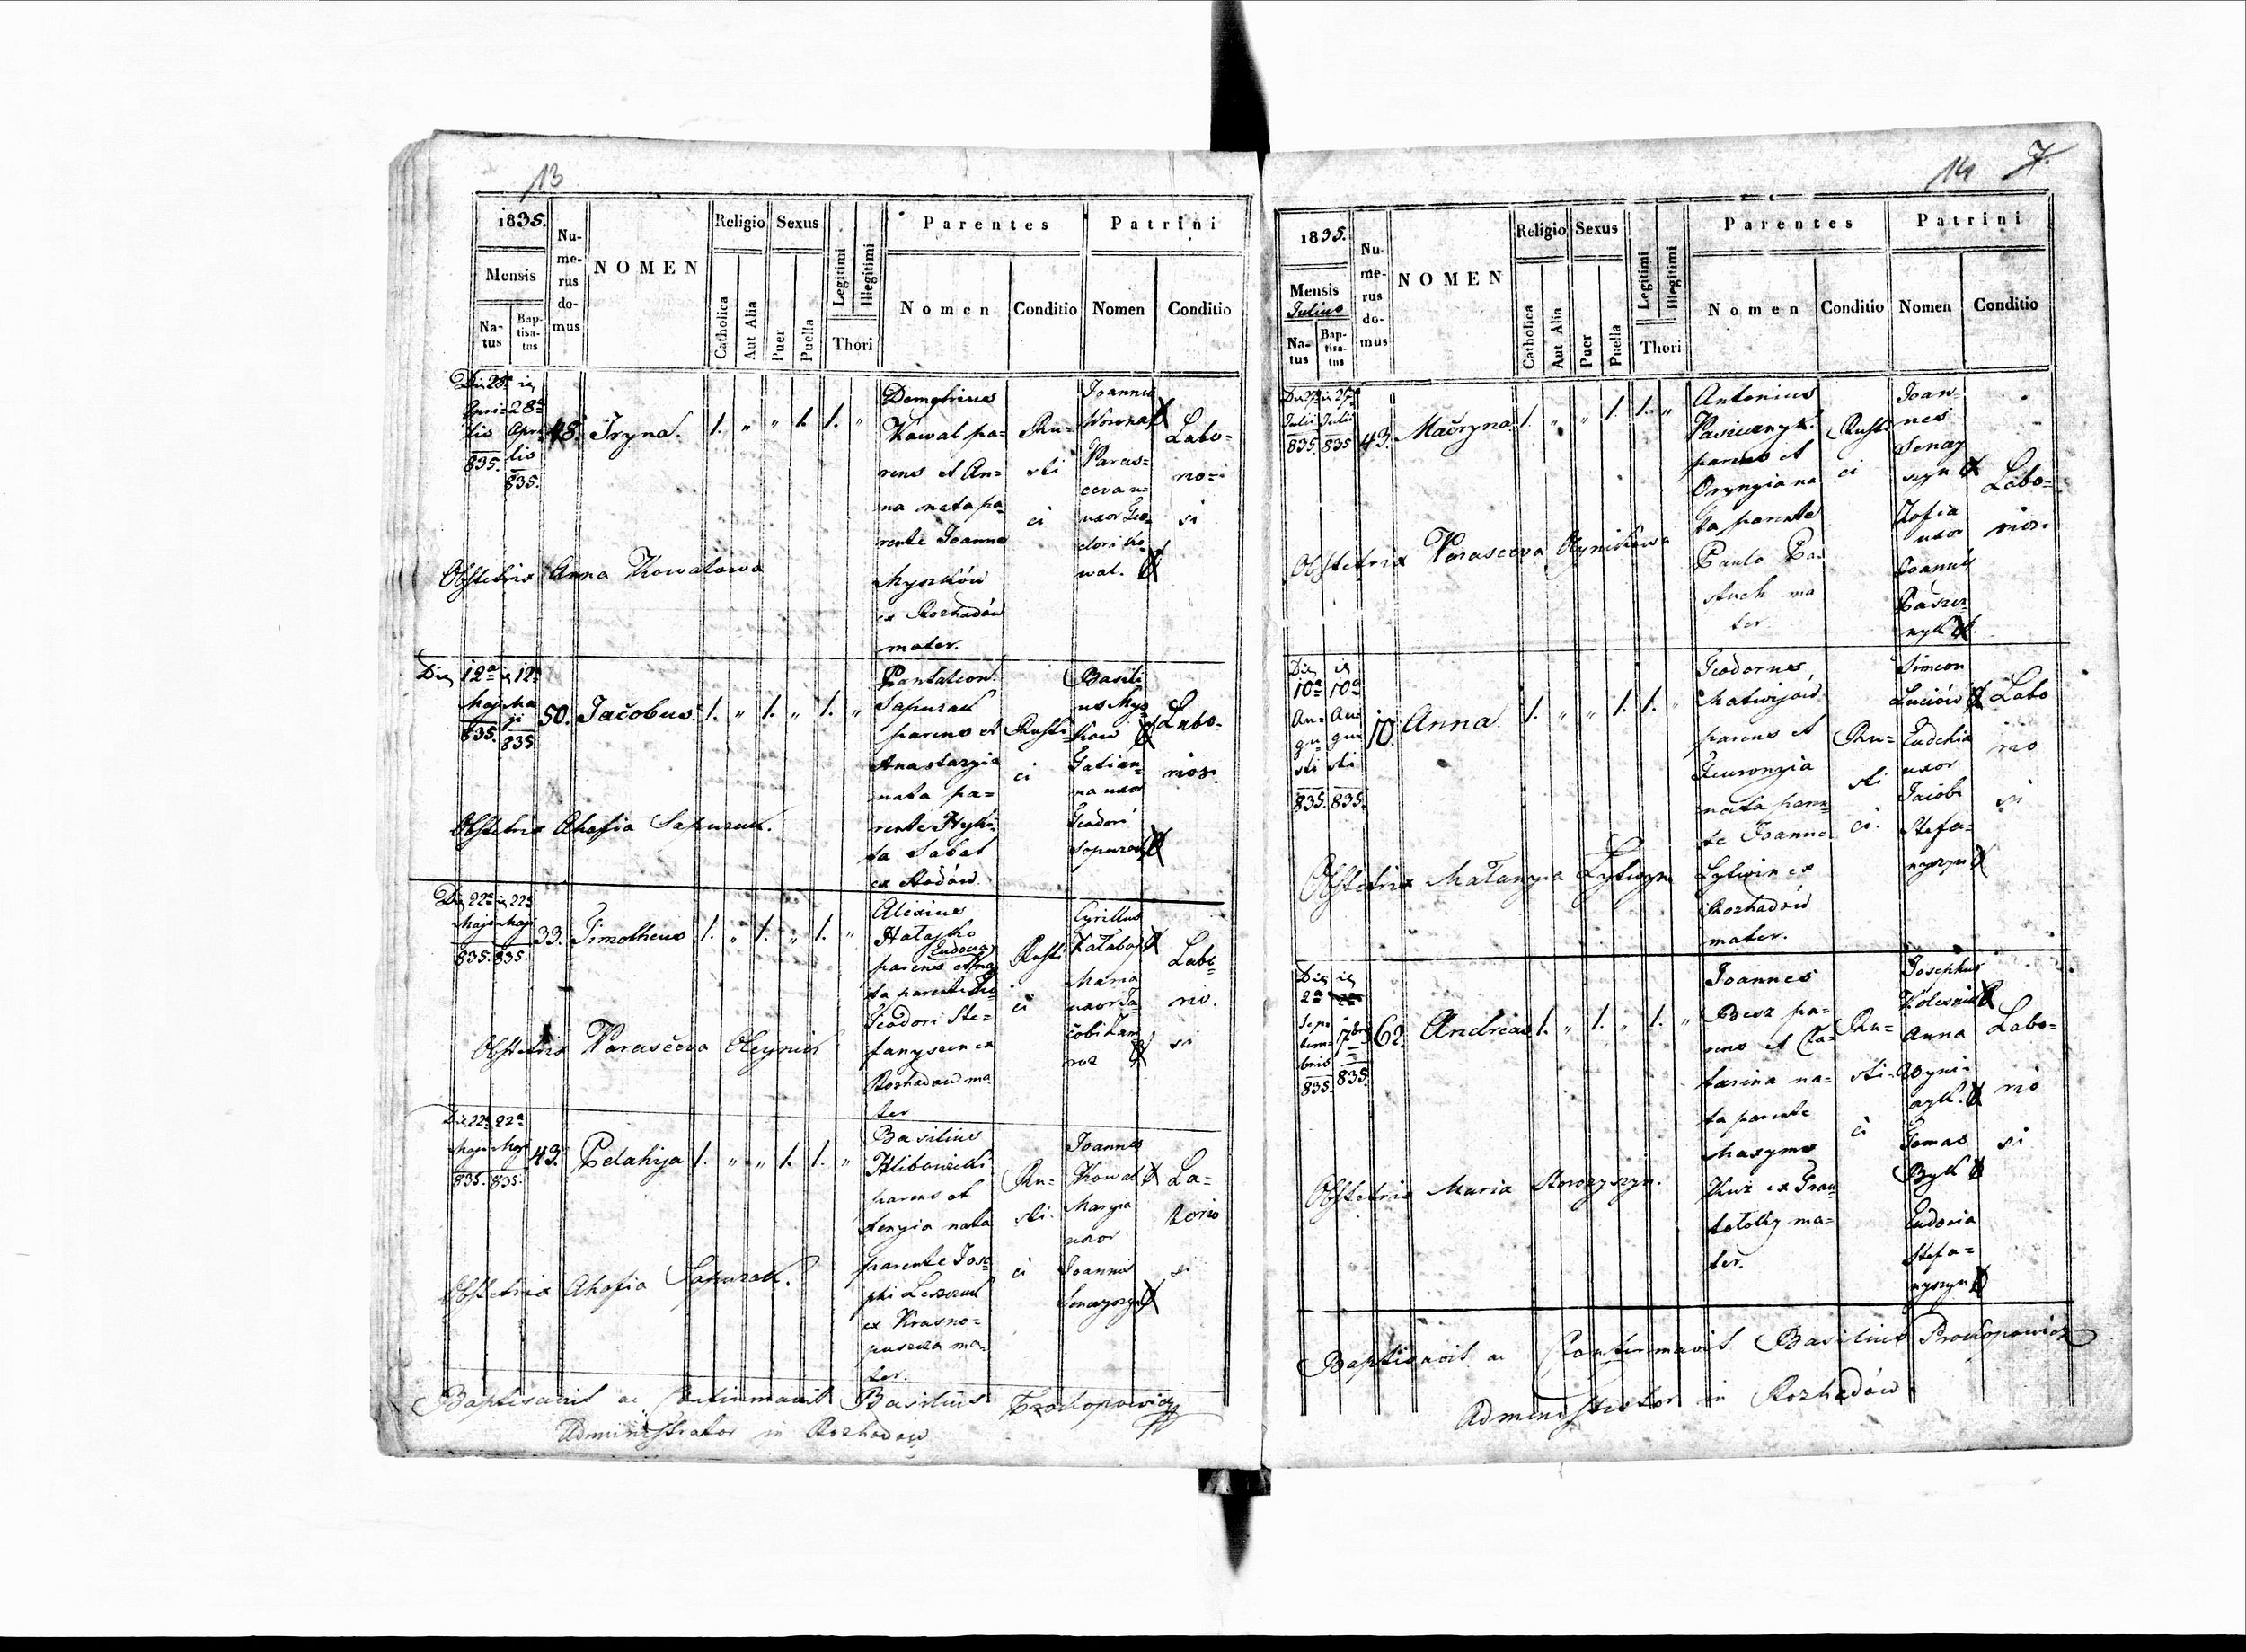 13
1835.
Mensis
Na-
tus
Bap-
tisa-
tus
Nu-
me-
rus
do-
mus
NOMEN
Religio
Catholica
Aut Alia
Sexus
Puer
Puella
Legitimi
Illegitimi
Thori
Parentes
Nomen
Conditio
Patrini
Nomen
Conditio
Apri-
lis
835.
28a
Apri-
lis
835.
48.
Iryna.
1. " " 1. 1. "
Demetrius
Kowal pa-
rens et An-
na nata pa-
rente Joanne
Myszków
ex Rozhadów
mater.
Ru-
sti
ci
Joannes
Paras-
ceva
uxor Teo-
dori Ko-
wal.
Labo-
rio-
si
Obstetrix Anna Kowalowa
Die 12a
Maji
835.
12a
Ma
ji
835
50.
Jacobus.
1. " 1. " 1. "
Pantaleon
Sapuzak
parens et
Anastazia
nata pa-
rente Hyki-
ta Sabat
ex
Rusti-
ci
Basili
us Mys
kow
Tatian-
na uxor
Teodori
Sapuzak
Labo-
riosi.
Obstetrix Ahafia Sapuzak.
Die 22a
Maji
835.
22a
Maji
835.
33.
Timotheus
1. " 1. " 1. "
Alexius
Hałajko
Eudocia
parens et na
ta parente
Teodori Ste-
fanyszen ex
Rozhadow ma
ter
Rusti
ci
Cyrillus
Maria
uxor Ja-
cobi
Labo-
rio.
si
Obstetrix Parasceva Oleynik
Die 22a
Maji
835.
22a
Maji
835.
43.
Pelahija
1. " " 1. 1. "
Basilius
Hlibowicki
parens et
nata
parente Jose
phi
ex Krasno-
puszcza ma-
ter.
Ru-
sti-
ci
Joannes
Kowal
Maryia
uxor
Joannis
Senczyszyn
La-
borio
si
Obstetrix Ahafia Sapuzak.
Baptisavit ac Confirmavit Basilius Prokopowicz
Administrator in Rozhadow
14 7.
1835.
Mensis
Julius
Na-
tus
Bap-
tisa-
tus
Nu-
me-
rus
do-
mus
NOMEN
Religio
Catholica
Aut Alia
Sexus
Puer
Puella
Legitimi
Illegitimi
Thori
Parentes
Nomen
Conditio
Patrini
Nomen
Conditio
Julii
835.
Julii
835
43.
Macryna.
1. " " 1. 1. "
Antonius
parens et
na
ta parente
Paulo Pa
stuch ma
ter.
Rusti
ci
Joan-
nes
Zofia
uxor
Joannis
Labo-
riosi
Obstetrix Parasceva
Die
10a
Au-
gu-
sti
835.
10a
Au
gu
sti
835.
10.
Anna.
1. " " 1. 1. "
Teodorus
Matwijów
parens et
nata paren-
te Joanne
Lytwin ex
Rozhadów
mater.
Ru-
sti
ci.
Simeon
Luciów
Eudokia
uxor
Jacobi
Stefa-
nyszyn
Labo
rio
si
Obstetrix Małanyia Lytwyn
Die
2a
Sep-
tem-
bris
835.
7bris
835.
62.
Andreas
1. " 1. " 1. "
Joannes
pa-
rens et Ca-
tarina na-
ta parente
Maxymo
ex Trau-
tołoky ma-
ter.
Ru-
sti-
ci
Josephus
Kolesnik
Anna
Tomas
Byk
Eudocia
Stefa-
nyszyn
Labo-
rio
si
Obstetrix Maria
Baptisavit ac Confirmavit Basilius Prokopowicz
Administrator in Rozhadów